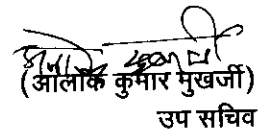 (आलोक कुमार मुखर्जी)
उप सचिव